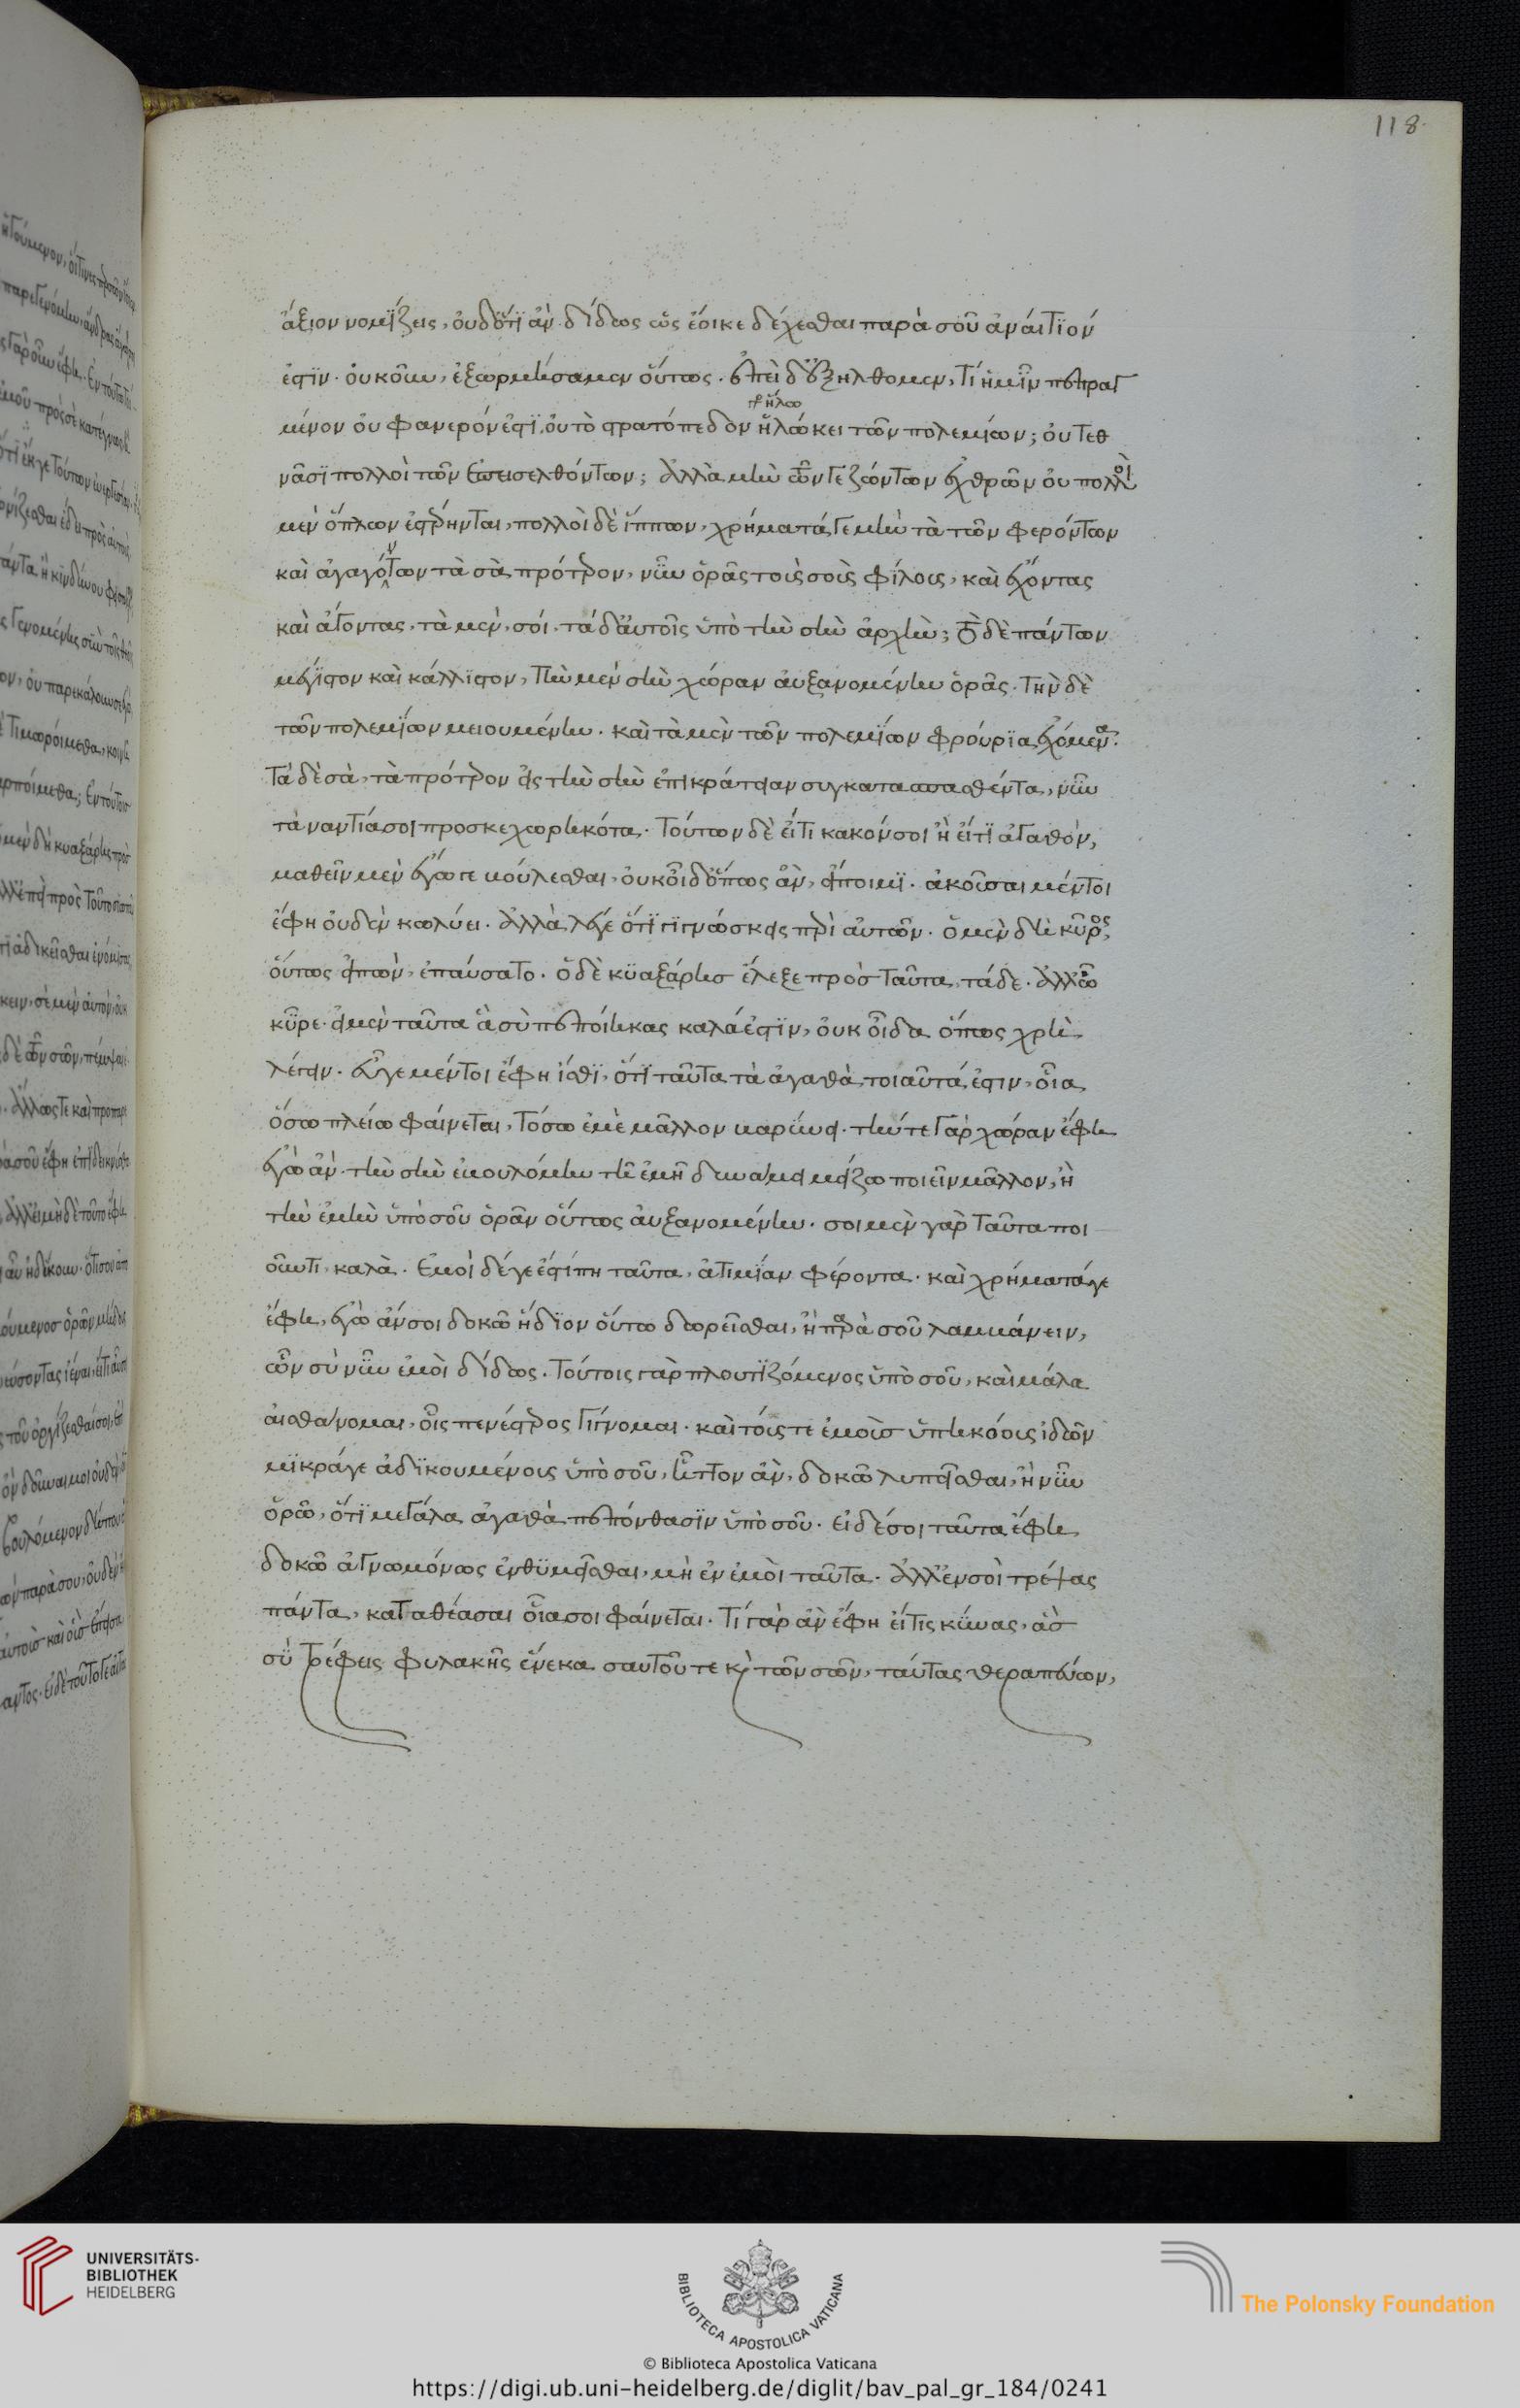 118
ἄξιον νομίζεις, οὐδ' ὅτι ἂν διδῶς ὡς ἔοικε δέχεσθαι παρὰ σοῦ ἀναίτιόν
ἐστιν. οὐκοῦν, ἐξωρμήσαμεν οὕτως. ἐπεὶ δ' ἐξήλθομεν, τί ἡμῖν πεπραγ
μένον οὐ φανερόν ἐστι, οὐ τὸ στρατόπεδον ἡλώκει τῶν πολεμίων; οὐ τεθ
νᾶσι πολλοὶ τῶν ἐπεισελθόντων; ἀλλὰ μὴν τῶν γε ζώντων ἐχθρῶν οὐ πολλοὶ
μὲν ὅπλων ἐστέρηνται, πολλοὶ δὲ ἵππων, χρήματά γε μὴν τὰ τῶν φερόντων
καὶ ἀγαγόντων τὰ σὰ πρότερον, νῦν ὁρᾷς τοὺς σοὺς φίλους, καὶ ἔχοντας
καὶ ἄγοντας, τὰ μὲν, σοί, τὰ δ' αὐτοῖς ὑπὸ τὴν σὴν ἀρχήν; τὸ δὲ πάντων
μέγιστον καὶ κάλλιστον, τὴν μὲν σὴν χώραν αὐξανομένην ὁρᾷς. τὴν δὲ
τῶν πολεμίων μειουμένην. καὶ τὰ μὲν τῶν πολεμίων φρούρια ἐχόμενα.
τὰ δὲ σὰ, τὰ πρότερον εἰς τὴν σὴν ἐπικράτειαν συγκατασπασθέντα, νῦν
τἀναντία σοι προσκεχωρηκότα. τούτων δὲ εἴ τι κακόν σοι ἢ εἴ τι ἀγαθόν,
μαθεῖν μὲν ἔγωγε βούλεσθαι, οὐκ οἶδ' ὅπως ἂν, εἴποιμι. ἀκοῦσαι μέντοι
ἔφη οὐδὲν κωλύει. ἀλλὰ λέγε ὅτι γιγνώσκεις περὶ αὐτῶν. ὁ μὲν δὴ κῦρος,
οὕτως εἰπὼν, ἐπαύσατο. ὁ δὲ κυαξάρης ἔλεξε πρὸς ταῦτα, τάδε. ἀλλ' ὦ
κῦρε. εἰ μὲν ταῦτα ἃ σὺ πεποίηκας καλά ἐστιν, οὐκ οἶδα ὅπως χρὴ
λέγειν. εὖ γε μέντοι ἔφη ἴσθι, ὅτι ταῦτα τὰ ἀγαθὰ, τοιαῦτά ἐστιν, οἷα
ὅσω πλείω φαίνεται, τόσω ἐμὲ μᾶλλον βαρύνει. τήν τε γὰρ χώραν ἔφη
ἐγὼ ἂν τὴν σὴν ἐβουλόμην τῇ ἐμῇ δυνάμει μείζω ποιεῖν μᾶλλον, ἢ
τὴν ἐμὴν ὑπὸ σοῦ ὁρᾶν οὕτως αὐξανομένην. σοὶ μὲν γὰρ ταῦτα ποι
οῦντι, καλὰ. ἐμοὶ δέ γε ἔστί πη ταῦτα, ἀτιμίαν φέροντα. καὶ χρήματά γε
ἔφη, ἐγὼ ἄν σοι δοκῶ ἥδιον οὕτω δωρεῖσθαι, ἢ παρὰ σοῦ λαμβάνειν,
ὧν σὺ νῦν ἐμοὶ δίδως. τούτοις γὰρ πλουτιζόμενος ὑπὸ σοῦ, καὶ μάλα
αἰσθάνομαι, οἷς πενέστερος γίγνομαι. καὶ τούς τε ἐμοὺς ὑπηκόους ἰδὼν
μικρά γε ἀδικουμένους ὑπὸ σοῦ, ἧττον ἂν, δοκῶ λυπεῖσθαι, ἢ νῦν
ὁρῶ, ὅτι μεγάλα ἀγαθὰ πεπόνθασιν ὑπὸ σοῦ. εἰ δέ σοι ταῦτα ἔφη
δοκῶ ἀγνωμόνως ἐνθυμεῖσθαι, μὴ ἐν ἐμοὶ ταῦτα. ἀλλ' ἐν σοὶ τρέψας
πάντα, καταθέασαι οἷά σοι φαίνεται. τί γὰρ ἂν ἔφη εἴ τις κύνας, ἃς
σὺ τρέφεις φυλακῆς ἕνεκα σαυτοῦ τε καὶ τῶν σῶν, ταύτας θεραπεύων,
UNIVERSITÄTS-
BIBLIOTHEK
HEIDELBERG
BIBLIOTECA APOSTOLICA VATICANA
The Polonsky Foundation
© Biblioteca Apostolica Vaticana
https://digi.ub.uni-heidelberg.de/diglit/bav_pal_gr_184/0241